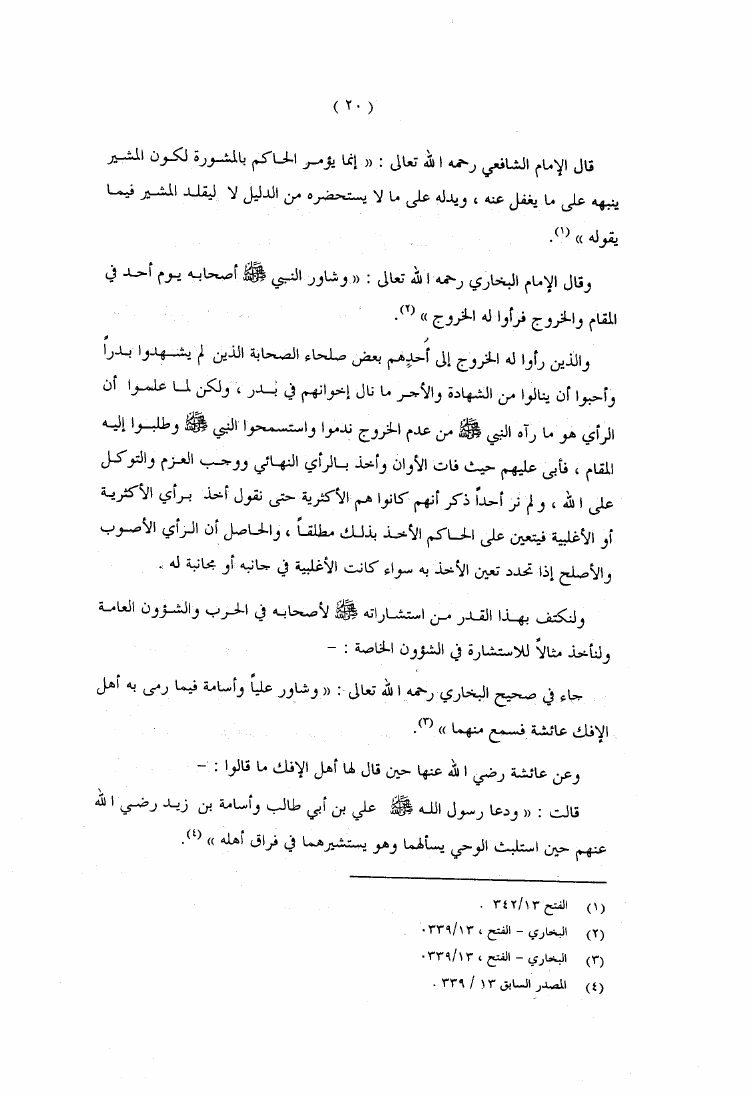 ( ٢٠ )
قال الإمام الشافعي رحمه الله تعالى : « إنما يؤمر الحاكم بالمشورة لكون المشير
ينبهه على ما يغفل عنه ، ويدله على ما لا يستحضره من الدليل لا ليقلد المشير فيما
يقوله » (١).
وقال الإمام البخاري رحمه الله تعالى : « وشاور النبي ﷺ أصحابه يوم أحد في
المقام والخروج فرأوا له الخروج » (٢).
والذين رأوا له الخروج إلى أُحدِهم بعض صلحاء الصحابة الذين لم يشهدوا بدراً
وأحبوا أن ينالوا من الشهادة والأجر ما نال إخوانهم في بدر ، ولكن لما علموا أن
الرأي هو ما رآه النبي ﷺ من عدم الخروج ندموا واستسمحوا النبي ﷺ وطلبوا إليه
المقام ، فأبى عليهم حيث فات الأوان وأخذ بالرأي النهائي ووجب العزم والتوكل
على الله ، ولم نر أحداً ذكر أنهم كانوا هم الأكثرية حتى نقول أخذ برأي الأكثرية
أو الأغلبية فيتعين على الحاكم الأخذ بذلك مطلقاً ، والحاصل أن الرأي الأصوب
والأصلح إذا تحدد تعين الأخذ به سواء كانت الأغلبية في جانبه أو مجانبة له .
ولنكتف بهذا القدر من استشاراته ﷺ لأصحابه في الحرب والشؤون العامة
ولنأخذ مثالاً للاستشارة في الشؤون الخاصة : –
جاء في صحيح البخاري رحمه الله تعالى : « وشاور علياً وأسامة فيما رمى به أهل
الإفك عائشة فسمع منهما » (٣).
وعن عائشة رضي الله عنها حين قال لها أهل الإفك ما قالوا : –
قالت : « ودعا رسول الله ﷺ علي بن أبي طالب وأسامة بن زيد رضي الله
عنهم حين استلبث الوحي يسألهما وهو يستشيرهما في فراق أهله » (٤).
(١) الفتح ٣٤٢/١٣ .
(٢) البخاري – الفتح ، ٣٣٩/١٣.
(٣) البخاري – الفتح ، ٣٣٩/١٣.
(٤) المصدر السابق ١٣ / ٣٣٩ .